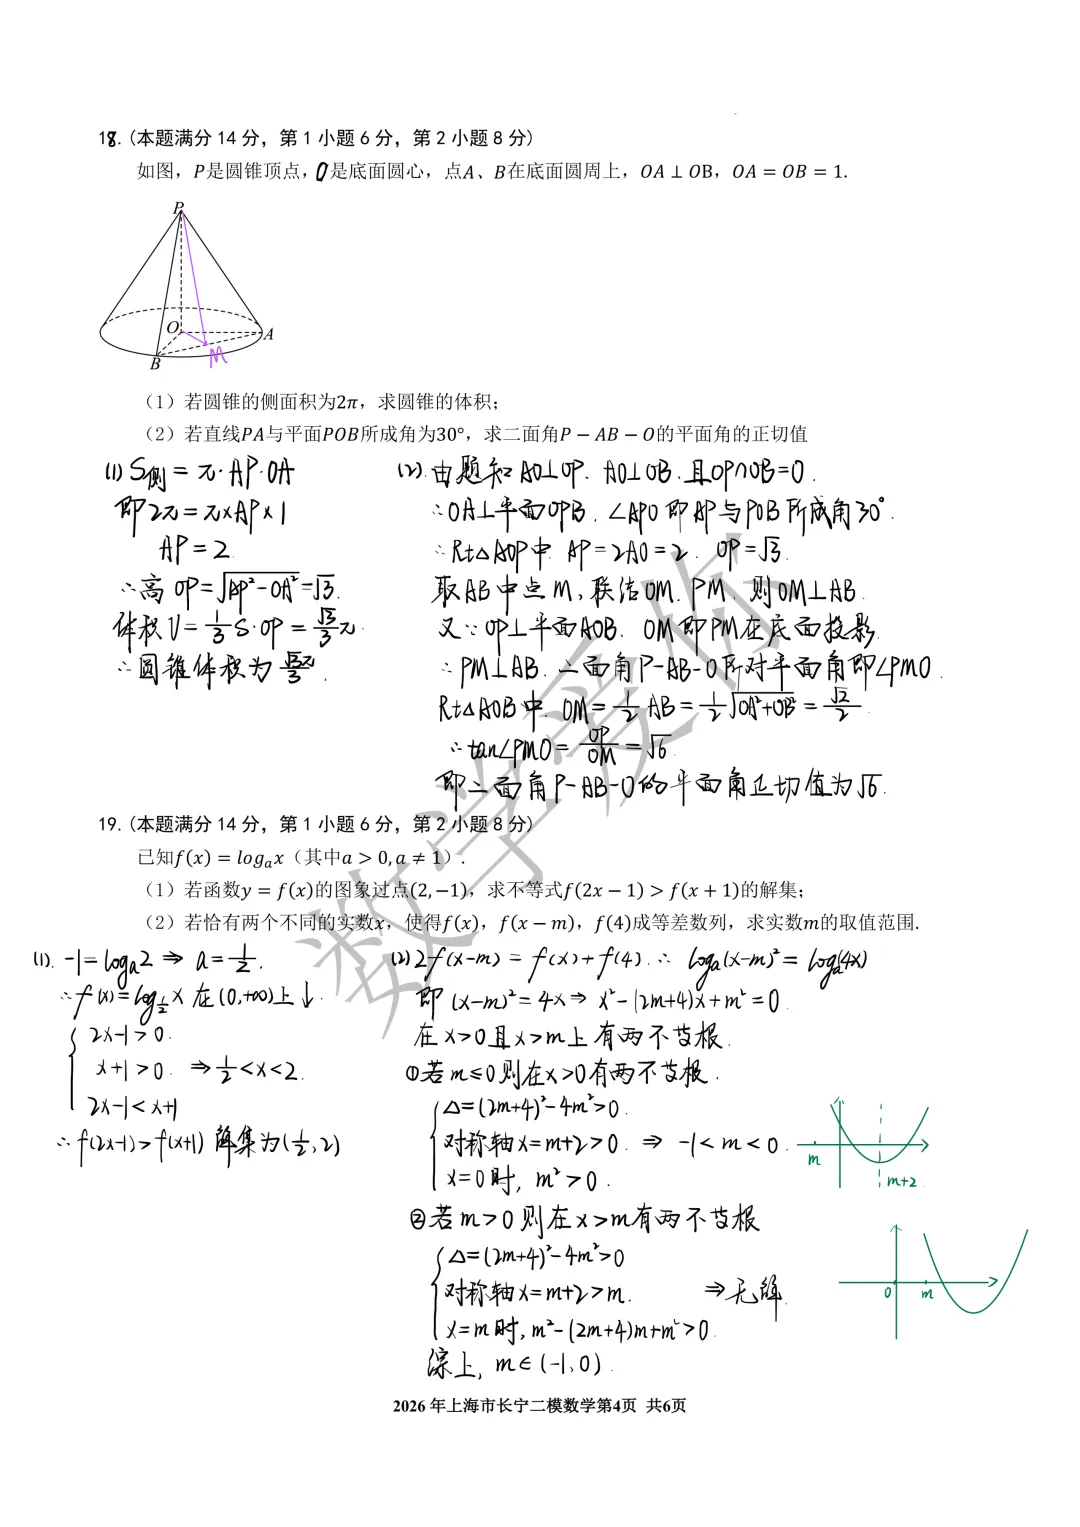 18.(本题满分14分，第1小题6分，第2小题8分)
如图，P是圆锥顶点，O是底面圆心，点A、B在底面圆周上，OA⊥OB，OA = OB = 1.
P
O
A
B
M
（1）若圆锥的侧面积为2π，求圆锥的体积；
（2）若直线PA与平面POB所成角为30°，求二面角P − AB − O的平面角的正切值
(1) S侧 = π·AP·OA
即 2π = π×AP×1
AP = 2.
∴高 OP = √(AP²-OA²) = √3.
体积 V = 1/3 S·OP = √3/3 π
∴圆锥体积为 √3π/3.
(2).由题知 AO⊥OP. AO⊥OB.且OP∩OB=O.
∴OA⊥平面OPB. ∠APO即AP与POB所成角30°.
∴Rt△AOP中. AP=2AO=2. OP=√3.
取AB中点M,联结OM.PM.则OM⊥AB.
又∵OP⊥平面AOB. OM即PM在底面投影.
∴PM⊥AB.二面角P-AB-O所对平面角即∠PMO.
Rt△AOB中. OM = 1/2 AB = 1/2 √(OA²+OB²) = √2/2.
∴tan∠PMO = OP/OM = √6.
即二面角P-AB-O的平面角正切值为√6.
19.(本题满分14分，第1小题6分，第2小题8分)
已知f(x) = logₐx（其中a > 0, a ≠ 1）.
（1）若函数y = f(x)的图象过点(2, −1)，求不等式f(2x − 1) > f(x + 1)的解集；
（2）若恰有两个不同的实数x，使得f(x)，f(x − m)，f(4)成等差数列，求实数m的取值范围.
(1). -1 = logₐ2 ⇒ a = 1/2.
∴f(x) = log_{1/2} x 在(0,+∞)上↓.
{ 2x-1>0.
x+1>0. ⇒ 1/2<x<2.
2x-1<x+1
∴f(2x-1)>f(x+1) 解集为(1/2,2)
(2) 2f(x-m) = f(x)+f(4). ∴ logₐ(x-m)² = logₐ(4x)
即 (x-m)²=4x ⇒ x²-(2m+4)x+m²=0.
在x>0且x>m上有两不等根.
①若m≤0则在x>0有两不等根.
{ △=(2m+4)²-4m²>0.
对称轴x=m+2>0. ⇒ -1<m<0.
x=0时, m²>0.
m
m+2
②若m>0则在x>m有两不等根
{ △=(2m+4)²-4m²>0
对称轴x=m+2>m. ⇒无解.
x=m时, m²-(2m+4)m+m²>0.
0 m
综上, m∈(-1,0).
2026年上海市长宁二模数学第4页 共6页
数学爱你